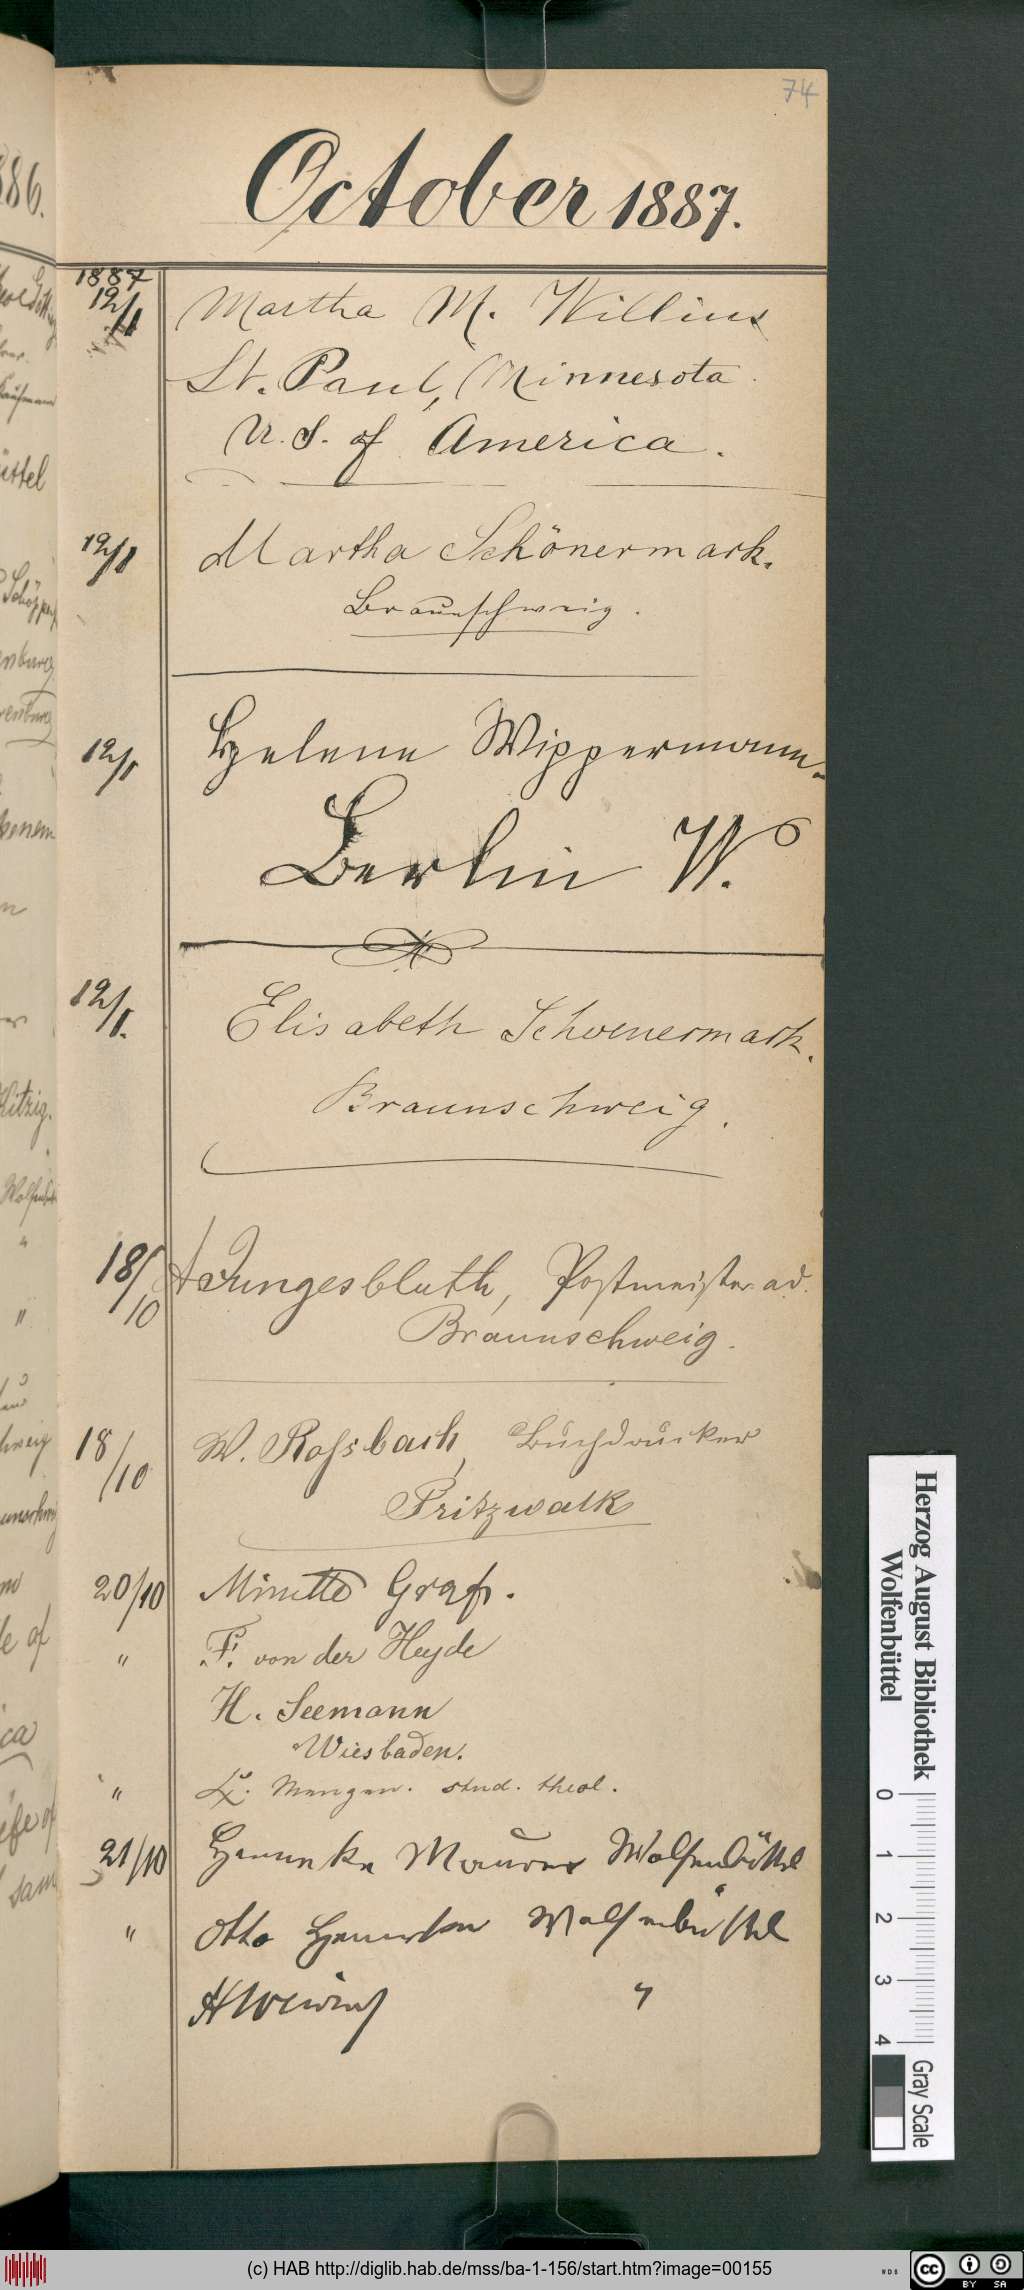 74
October 1887.
1887
12/1 Martha M. Willius
St. Paul, Minnesota
U. S. of America.
12/1 Martha Schönermark.
Braunschweig.
12/1 Helene Wippermann.
Berlin W.
12/1. Elisabeth Schoenermark.
Braunschweig.
18/10 A Jungesbluth, Postmeister ad.
Braunschweig.
18/10 W. Roßbach, Buchdrucker
Pritzwalk
20/10 Minette Graf.
" F. von der Heyde
H. Seemann
Wiesbaden.
" Mengen. stud. theol.
21/10 Maurer Wolfenbüttel
" Otto Wolfenbüttel
"
Herzog August Bibliothek
Wolfenbüttel
0 1 2 3 4
Gray Scale
(c) HAB http://diglib.hab.de/mss/ba-1-156/start.htm?image=00155
WDB
cc BY SA